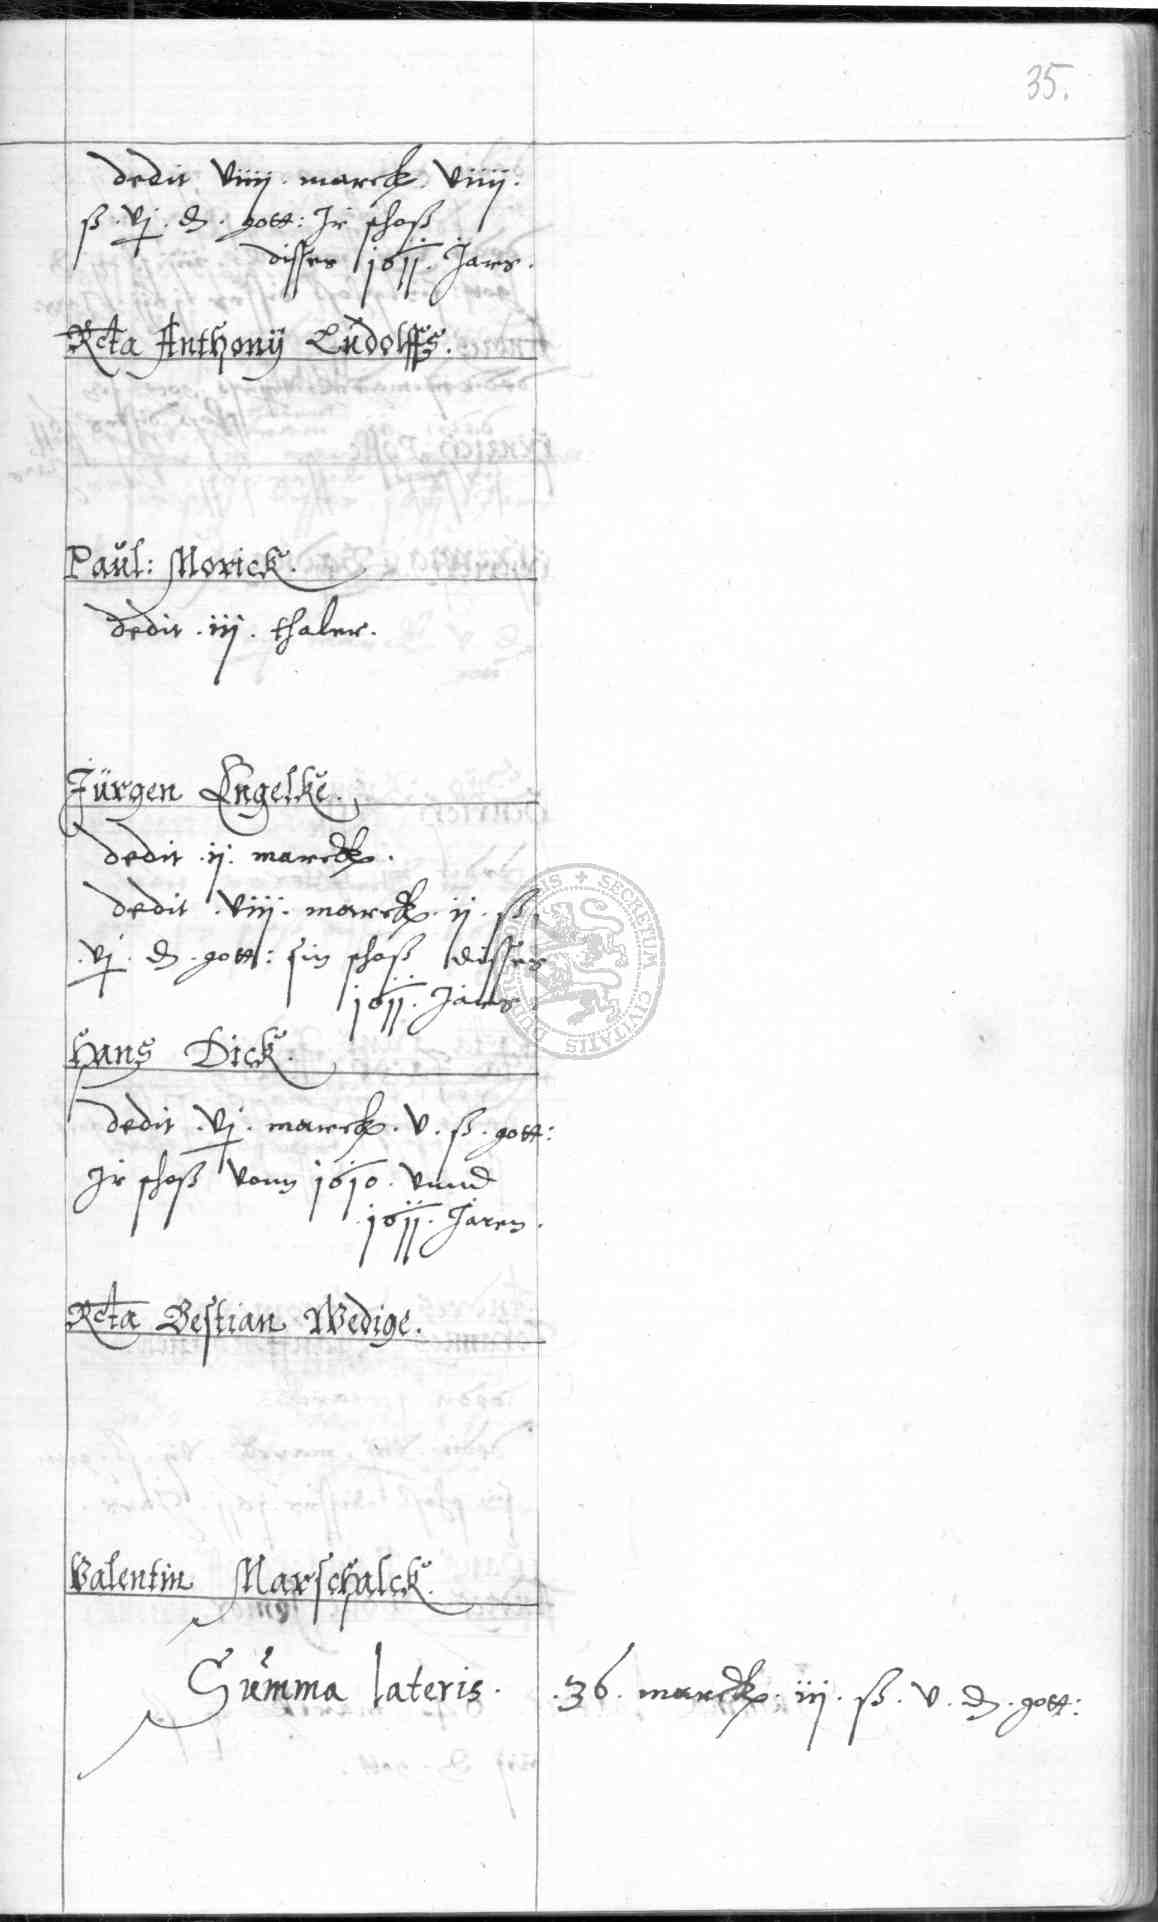 35.
dedit viiij . marck . viiij .
ß . vj . ₰ . gott: Jr schoß
disses 1611. Jars .
Rcta Anthonij Ludolffs.
Paul: Morick.
dedit . iij . thaler.
Jürgen Engelke.
dedit . ij . marck .
dedit . viij . marck . ij . ß .
. vj . ₰ . gott: sin schoß disses
1611. Jars .
Hans Dick.
dedit . vj . marck . v . ß . gott:
Jr schoß vonn 1610 . vnnd
. 1611. Jaren .
Rcta Bestian Wedige.
Valentin Marschalck.
Summa lateris . . 36 . marck . iij . ß . v . ₰ . gott:
SECRETUM CIVITATIS